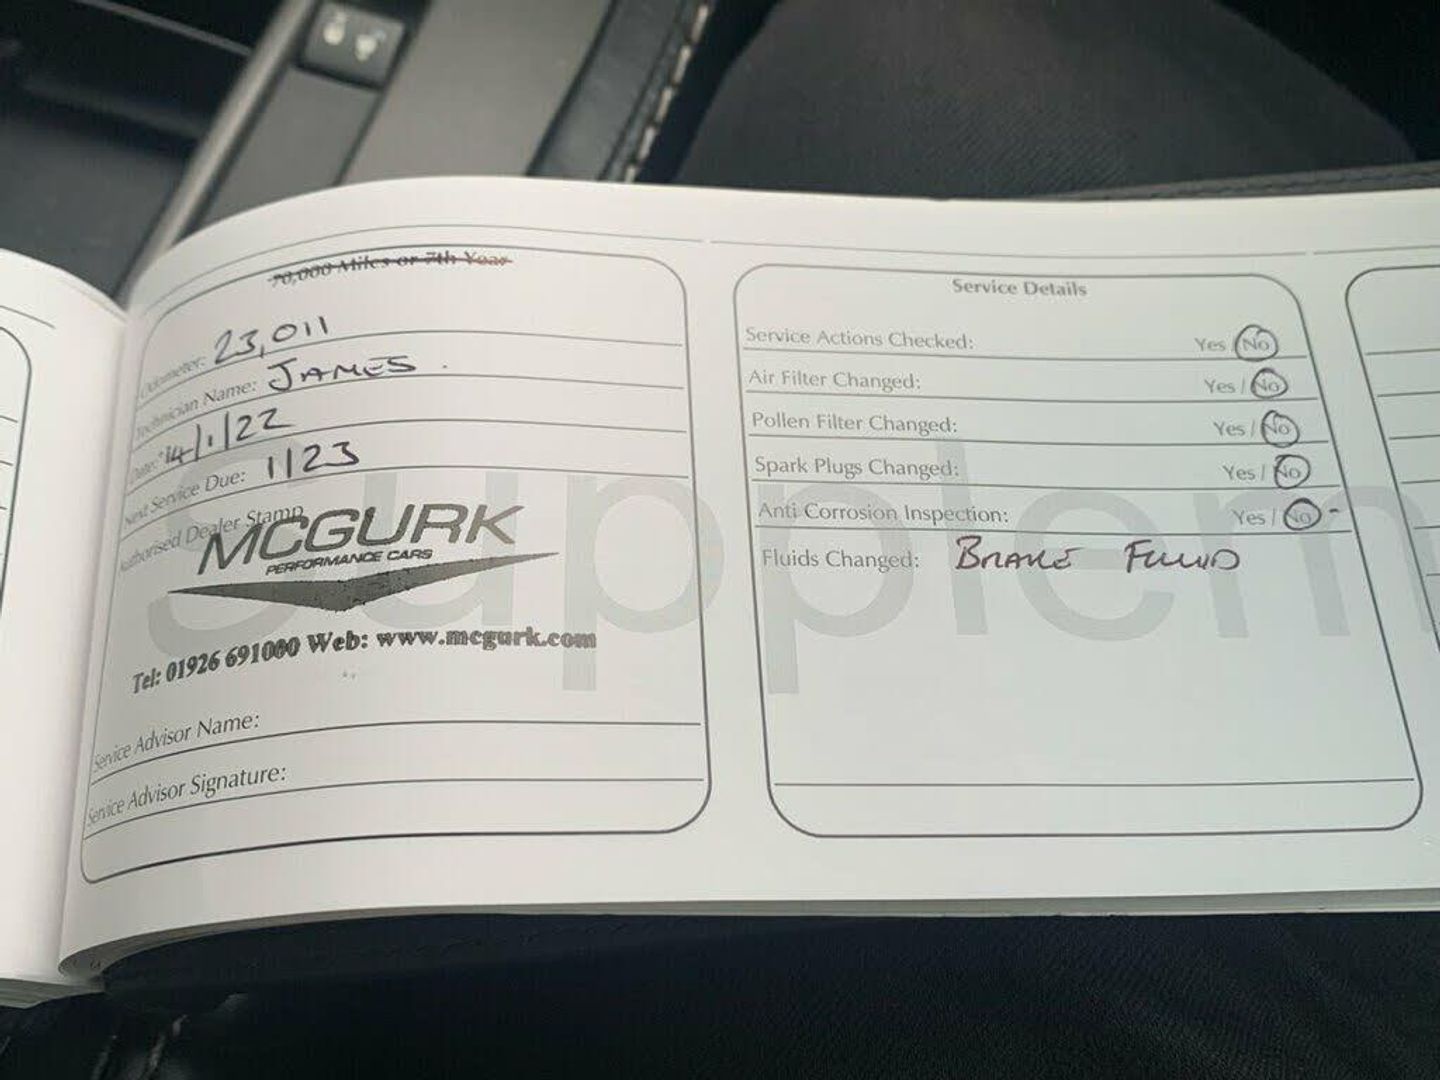 70,000 Miles or 7th Year
Odometer: 23,011
Technician Name: JAMES.
Date: 14/1/22
Next Service Due: 1/23
Authorised Dealer Stamp
MCGURK
PERFORMANCE CARS
Tel: 01926 691000 Web: www.mcgurk.com
Service Advisor Name:
Service Advisor Signature:
Service Details
Service Actions Checked: Yes / No
Air Filter Changed: Yes / No
Pollen Filter Changed: Yes / No
Spark Plugs Changed: Yes / No
Anti Corrosion Inspection: Yes / No -
Fluids Changed: BRAKE FLUID
Supplem